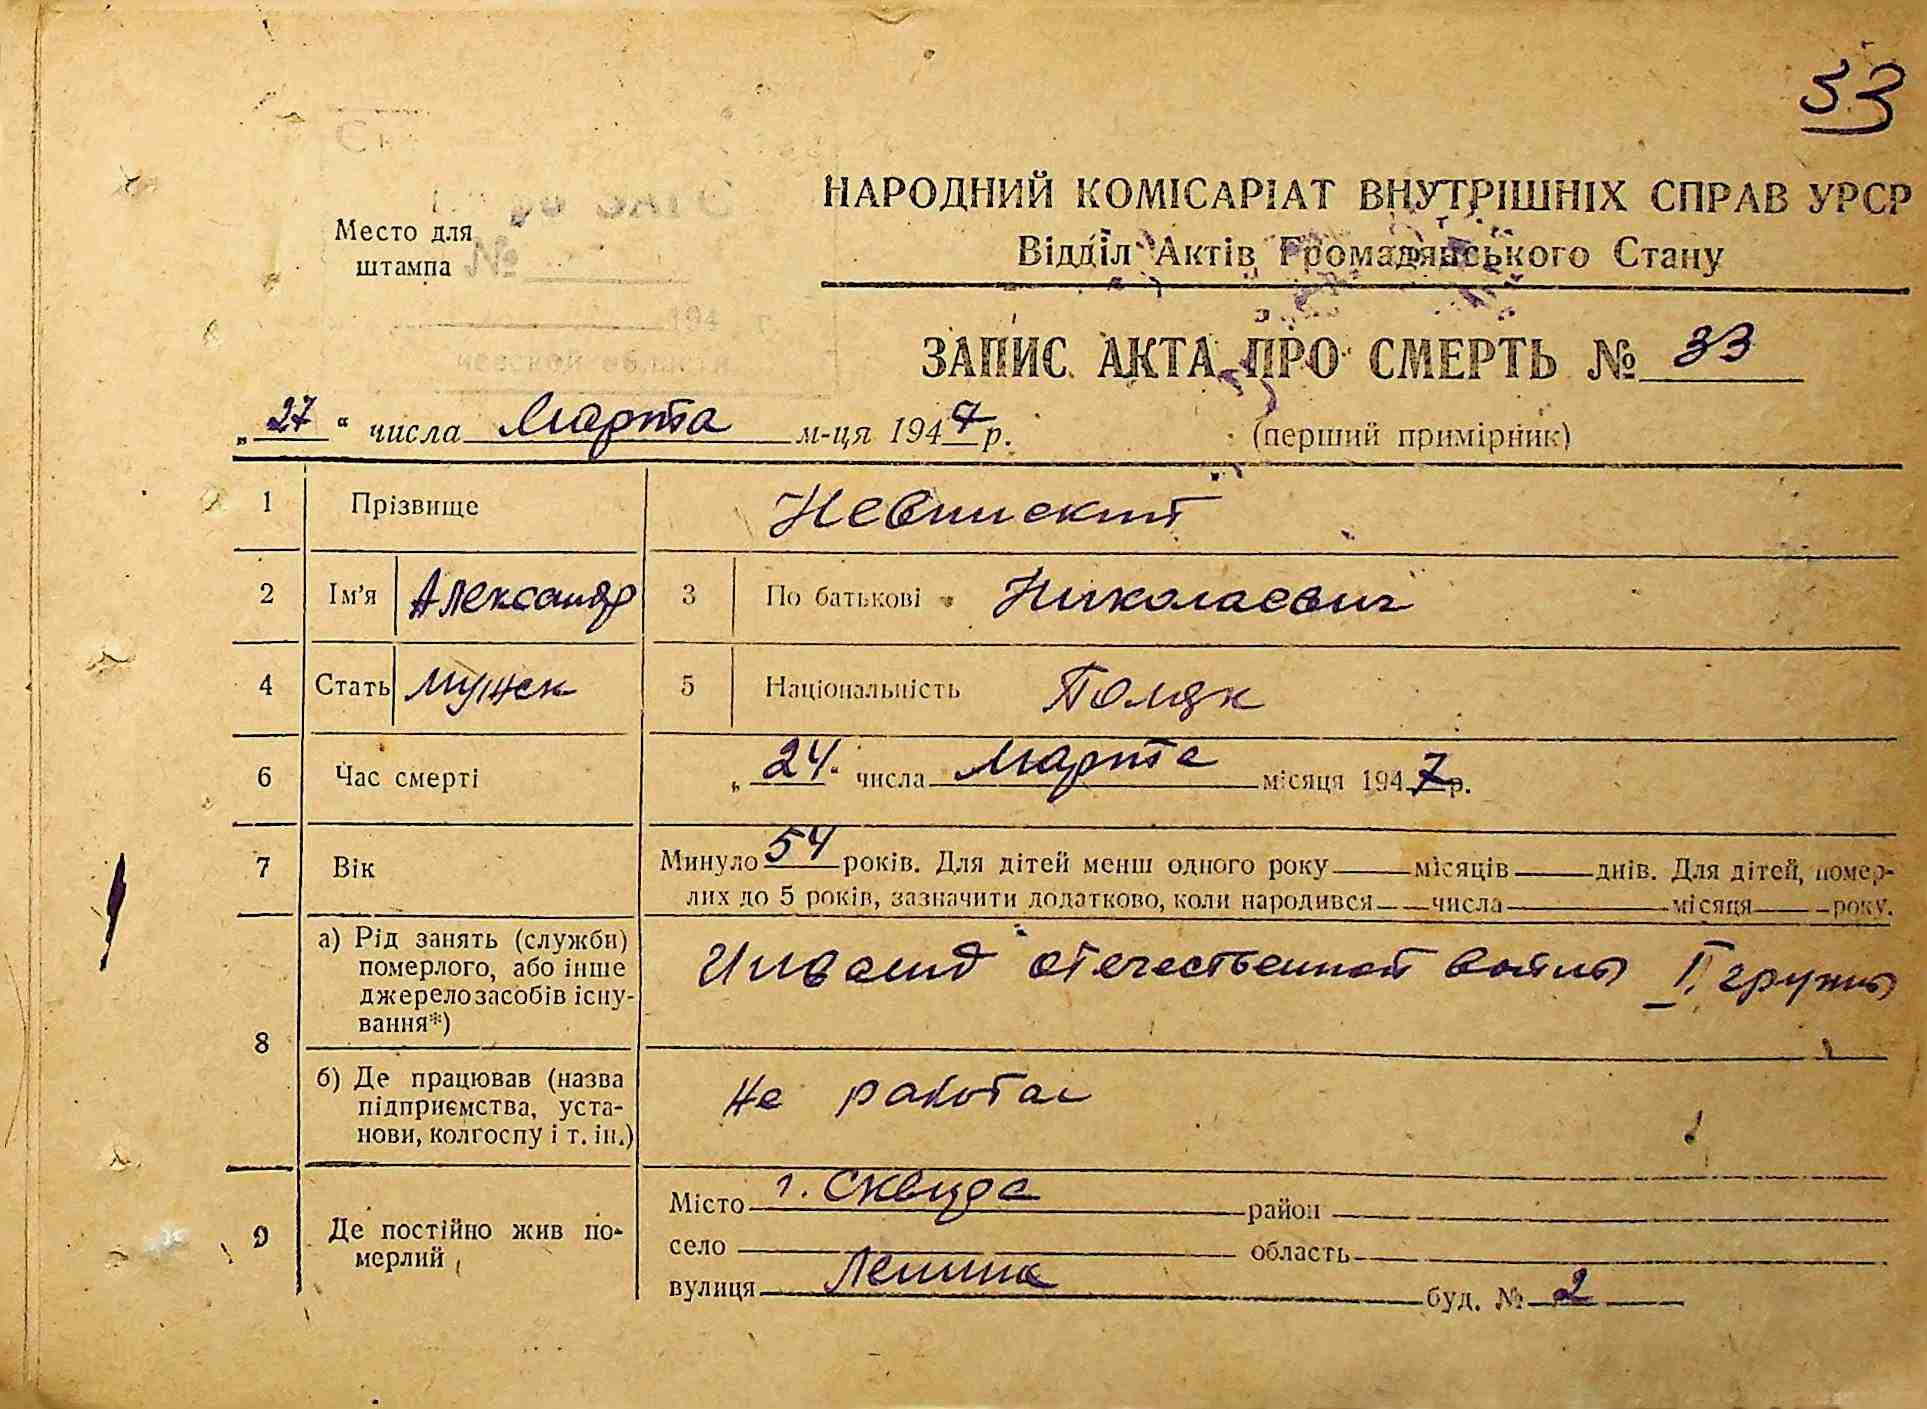 33
НАРОДНИЙ КОМІСАРІАТ ВНУТРІШНІХ СПРАВ УРСР
Відділ Актів Громадянського Стану
Место для
штампа
№
194 г.
ЗАПИС АКТА ПРО СМЕРТЬ № 33
„27“ числа Марта м-ця 1947 р.
(перший примірник)
1 Прізвище Невинский
2 Ім'я Александр 3 По батькові Николаевич
4 Стать мужск 5 Національність Поляк
6 Час смерті „24“ числа Марта місяця 1947 р.
7 Вік Минуло 54 років. Для дітей менш одного року місяців днів. Для дітей, помер-
лих до 5 років, зазначити додатково, коли народився числа місяця року.
8 а) Рід занять (служби)
померлого, або інше
джерело засобів існу-
вання*)
Инвалид отечественной войны II группы
б) Де працював (назва
підприємства, уста-
нови, колгоспу і т. ін.)
Не работал
9 Де постійно жив по-
мерлий
Місто г. Сквира район
село область
вулиця Ленина буд. № 2